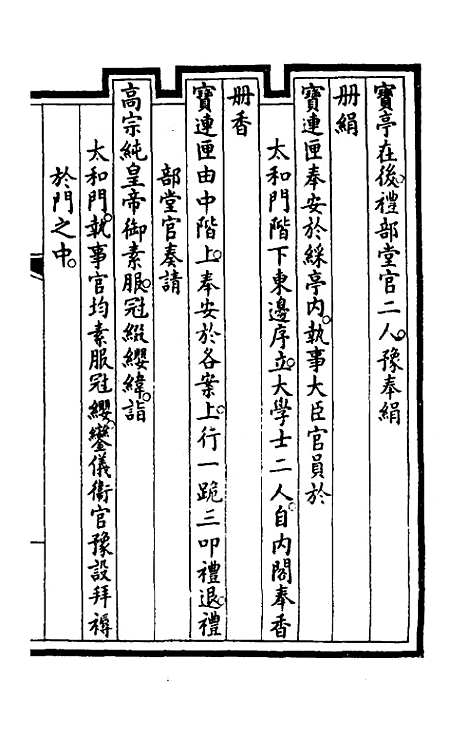 寶亭在後。禮部堂官二人。豫奉絹
册絹
寶連匣奉安於綵亭內。執事大臣官員於
太和門階下東邊序立。大學士二人。自內閣奉香
册香
寶連匣由中階上。奉安於各案上。行一跪三叩禮退。禮
部堂官奏請
高宗純皇帝御素服。冠綴纓緯。詣
太和門。執事官均素服冠纓。鑾儀衛官豫設拜褥
於門之中。